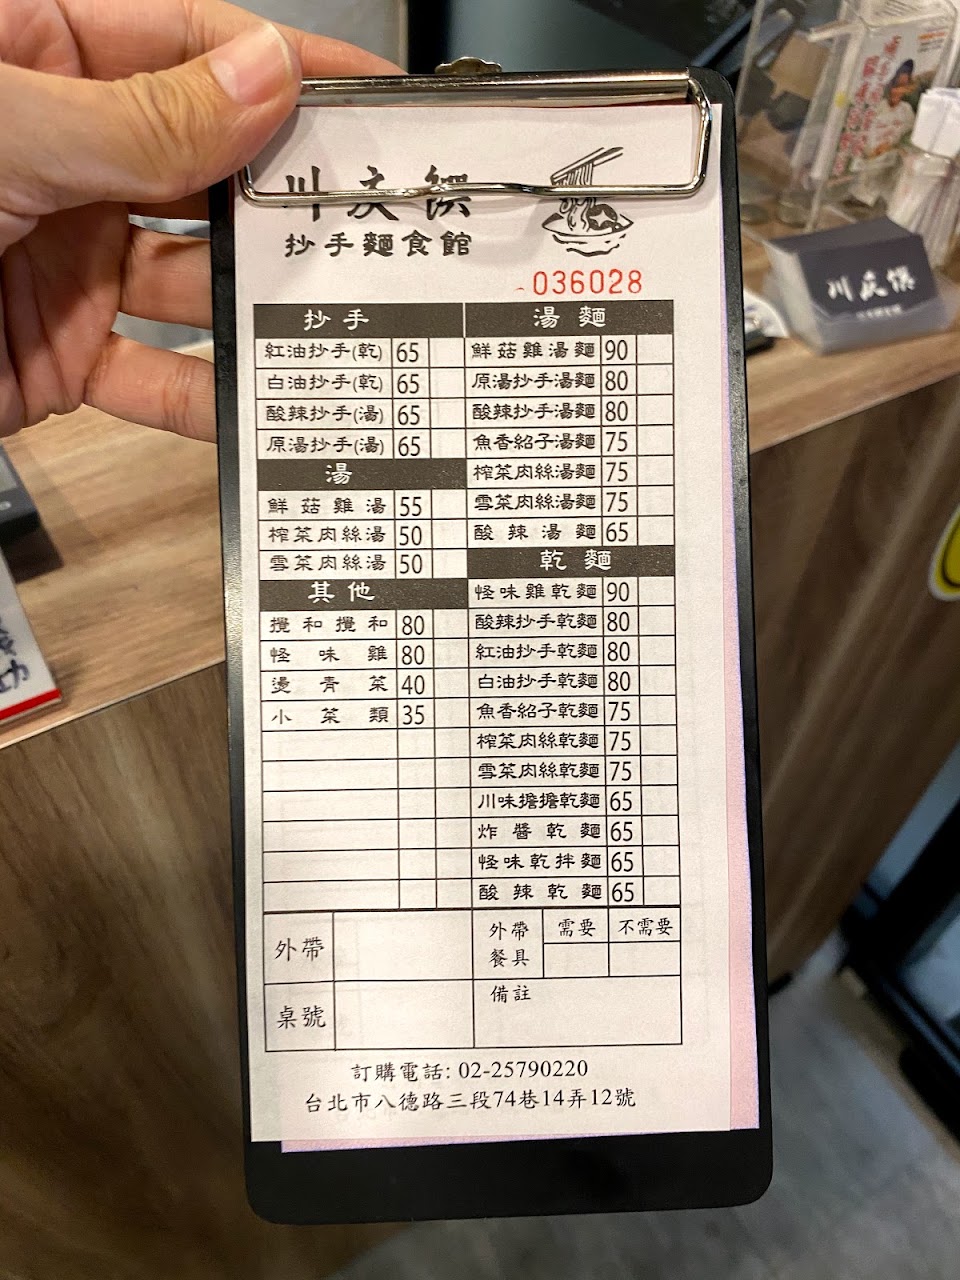 川庆馔
抄手麵食館
036028
抄手
紅油抄手(乾) 65
白油抄手(乾) 65
酸辣抄手(湯) 65
原湯抄手(湯) 65
湯
鮮菇雞湯 55
榨菜肉絲湯 50
雪菜肉絲湯 50
其他
攪和攪和 80
怪味雞 80
燙青菜 40
小菜類 35
湯麵
鮮菇雞湯麵 90
原湯抄手湯麵 80
酸辣抄手湯麵 80
魚香紹子湯麵 75
榨菜肉絲湯麵 75
雪菜肉絲湯麵 75
酸辣湯麵 65
乾麵
怪味雞乾麵 90
酸辣抄手乾麵 80
紅油抄手乾麵 80
白油抄手乾麵 80
魚香紹子乾麵 75
榨菜肉絲乾麵 75
雪菜肉絲乾麵 75
川味擔擔乾麵 65
炸醬乾麵 65
怪味乾拌麵 65
酸辣乾麵 65
外帶
桌號
外帶餐具 需要 不需要
備註
訂購電話: 02-25790220
台北市八德路三段74巷14弄12號
川庆馔